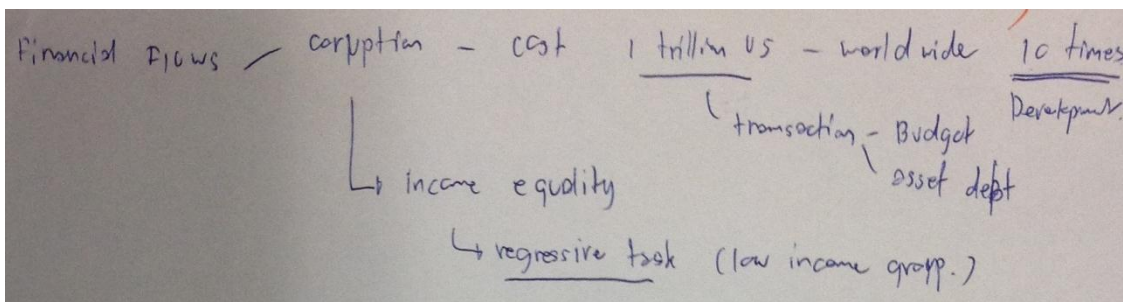 Financial Flows / corruption - cost 1 trillion US - world wide 10 times
Development.
transaction - Budget
asset debt
↳ income equality
↳ regressive task (low income group.)